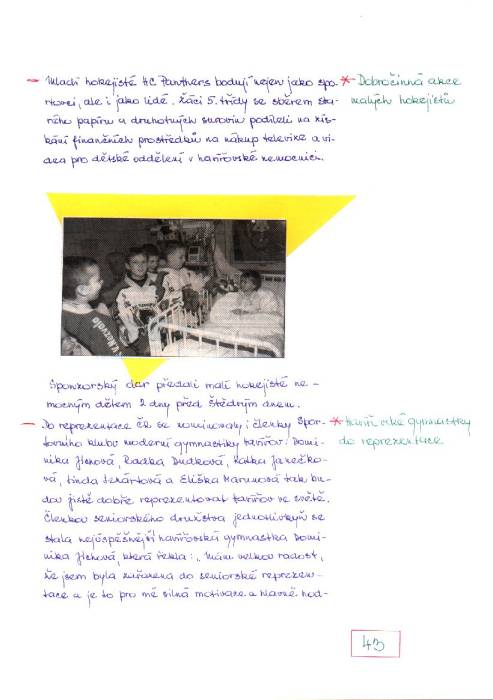 – Mladí hokejisté HC Panthers bodují nejen jako spo-
rtovci, ale i jako lidé. Žáci 5. třídy se sběrem sta-
rého papíru a druhotných surovin podíleli na zís-
kání finančních prostředků na nákup televize a vi-
dea pro dětské oddělení v havířovské nemocnici.
* Dobročinná akce
malých hokejistů
Sponzorský dar předali malí hokejisté ne-
mocným dětem 2 dny před Štědrým dnem.
– Do reprezentace ČR se nominovaly i členky Spor-
tovního klubu moderní gymnastiky Havířov: Domi-
nika Jichová, Radka Dudková, Katka Janečko-
vá, Linda a Eliška Marunová tak bu-
dou jistě dobře reprezentovat Havířov ve světě.
Členkou seniorského družstva jednotlivkyň se
stala nejúspěšnější havířovská gymnastka Domi-
nika Jichová, která řekla: „Mám velkou radost,
že jsem byla zařazena do seniorské reprezen-
tace a je to pro mě silná motivace a hlavně hod-
* Havířovské gymnastky
do reprezentace
43